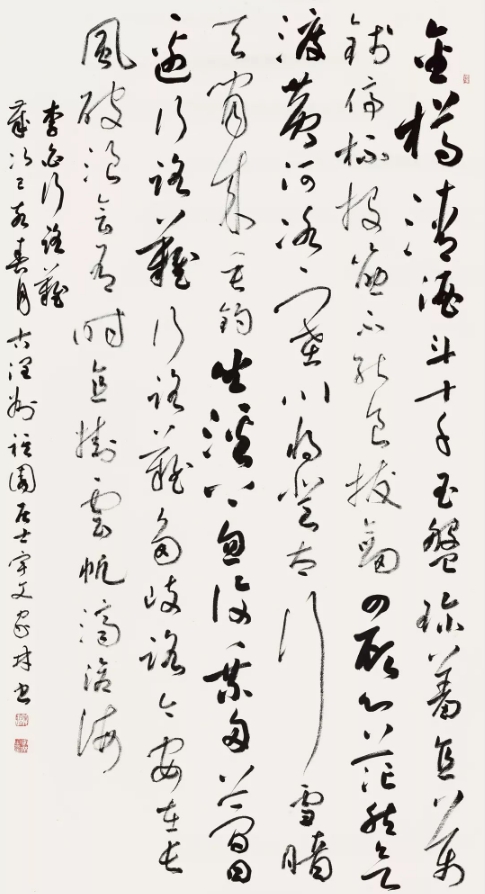 金樽清酒斗十千玉盤珍羞直萬
錢停杯投箸不能食拔劍四顧心茫然欲
渡黃河冰塞川將登太行雪暗
天閒來垂釣坐溪上忽復乘舟夢日
邊行路難行路難多岐路今安在長
風破浪會有時直掛雲帆濟滄海
李白行路難
歲次己亥春月古潤州園居士宇文家林書